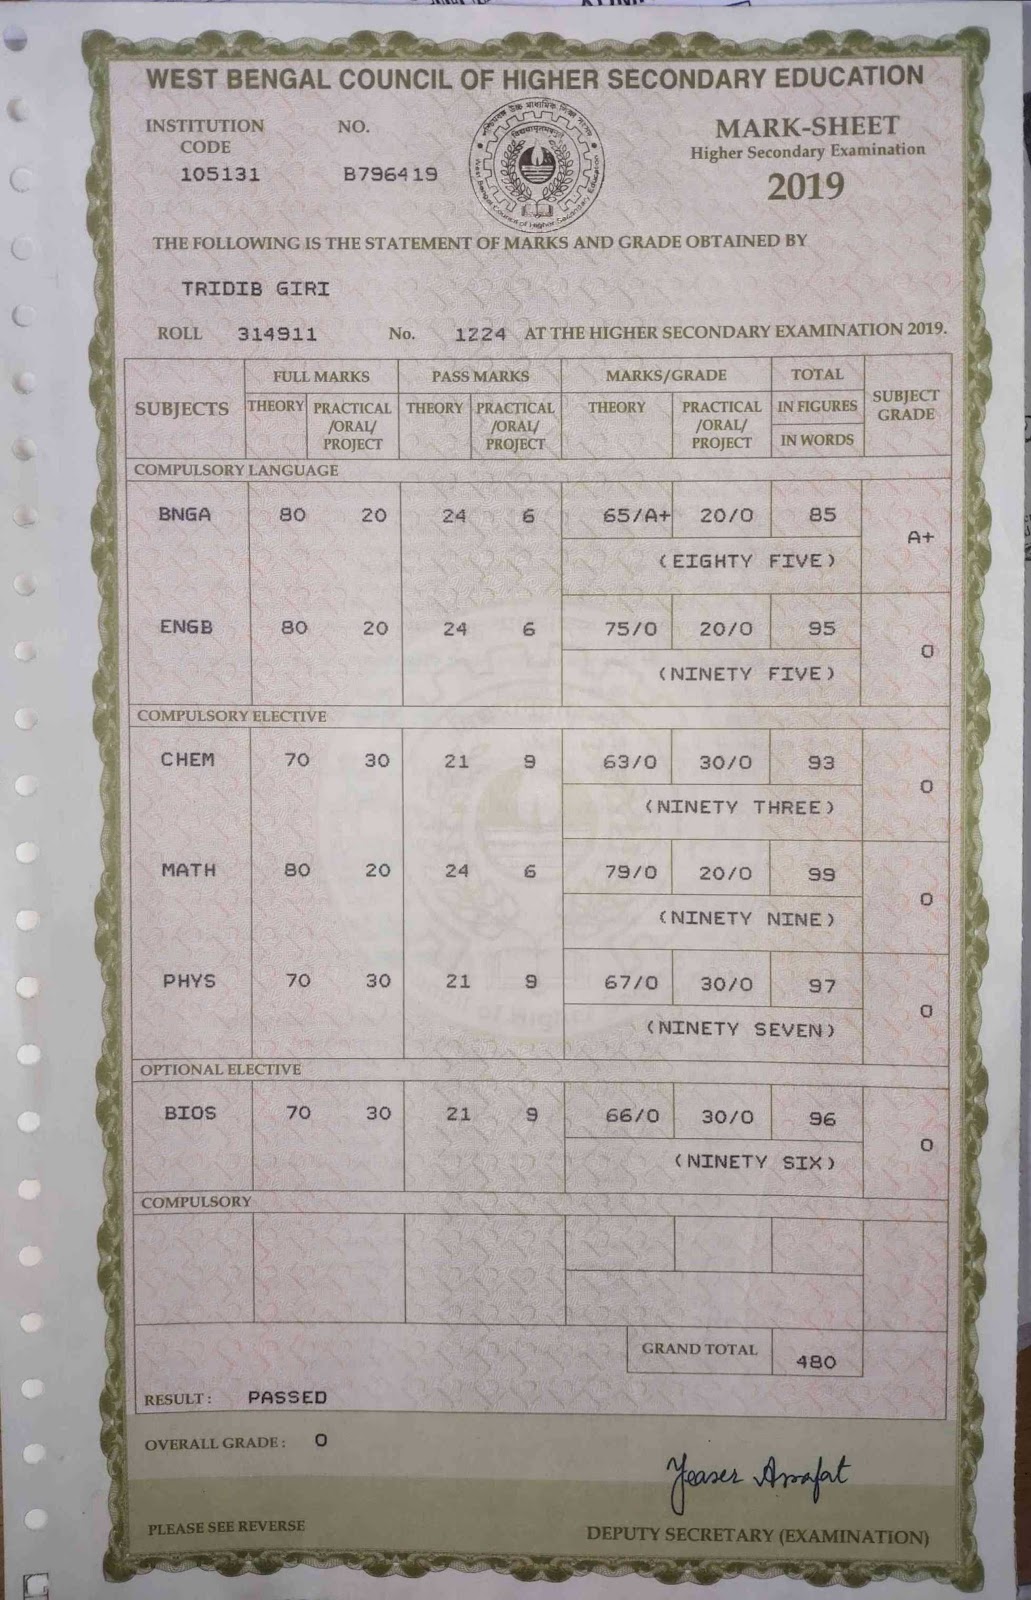 WEST BENGAL COUNCIL OF HIGHER SECONDARY EDUCATION
INSTITUTION CODE
105131
NO.
B796419
MARK-SHEET
Higher Secondary Examination
2019
THE FOLLOWING IS THE STATEMENT OF MARKS AND GRADE OBTAINED BY
TRIDIB GIRI
ROLL 314911 No. 1224 AT THE HIGHER SECONDARY EXAMINATION 2019.
SUBJECTS FULL MARKS PASS MARKS MARKS/GRADE TOTAL SUBJECT GRADE
THEORY PRACTICAL /ORAL/ PROJECT THEORY PRACTICAL /ORAL/ PROJECT THEORY PRACTICAL /ORAL/ PROJECT IN FIGURES
IN WORDS
COMPULSORY LANGUAGE
BNGA 80 20 24 6 65/A+ 20/O 85
A+
(EIGHTY FIVE)
ENGB 80 20 24 6 75/O 20/O 95
O
(NINETY FIVE)
COMPULSORY ELECTIVE
CHEM 70 30 21 9 63/O 30/O 93
O
(NINETY THREE)
MATH 80 20 24 6 79/O 20/O 99
O
(NINETY NINE)
PHYS 70 30 21 9 67/O 30/O 97
O
(NINETY SEVEN)
OPTIONAL ELECTIVE
BIOS 70 30 21 9 66/O 30/O 96
O
(NINETY SIX)
COMPULSORY
GRAND TOTAL 480
RESULT : PASSED
OVERALL GRADE : O
Yeaser Arrafat
PLEASE SEE REVERSE
DEPUTY SECRETARY (EXAMINATION)